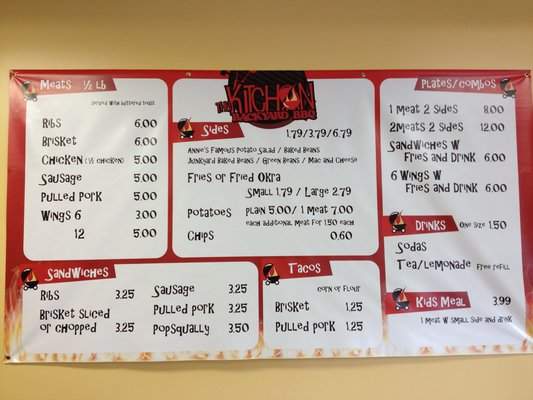 Meats 1/2 Lb
Served with buttered toast
Ribs 6.00
Brisket 6.00
Chicken (1/2 chicken) 5.00
Sausage 5.00
Pulled Pork 5.00
Wings 6 3.00
12 5.00
The Kitchen
Backyard BBQ
Sides 1.79/3.79/6.79
Annie's Famous Potato Salad / Baked Beans
Junkyard Baked Beans / Green Beans / Mac and Cheese
Fries or Fried Okra
Small 1.79 / Large 2.79
Potatoes Plain 5.00/ 1 Meat 7.00
each additional meat for 1.50 each
Chips 0.60
Plates/Combos
1 Meat 2 Sides 8.00
2 Meats 2 Sides 12.00
Sandwiches w
Fries and Drink 6.00
6 Wings w
Fries and Drink 6.00
Drinks One Size 1.50
Sodas
Tea/Lemonade Free refill
Kids Meal 3.99
1 Meat w small side and drink
Sandwiches
Ribs 3.25
Brisket Sliced
or Chopped 3.25
Sausage 3.25
Pulled Pork 3.25
PopSqually 3.50
Tacos
Corn or Flour
Brisket 1.25
Pulled Pork 1.25